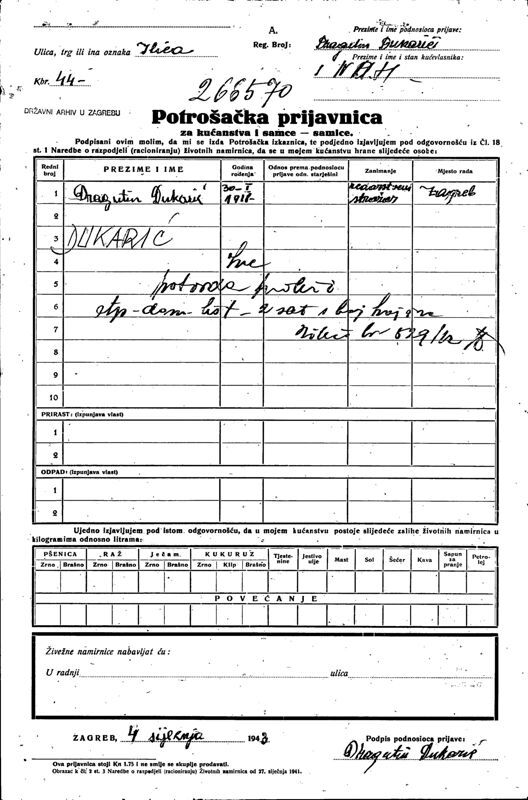 A.
Prezime i ime podnosioca prijave:
Ulica, trg ili ina oznaka Ilica
Reg. Broj: Dragutin Dukarić
Prezime i ime i stan kućevlasnika:
Kbr. 44-
266570
DRŽAVNI ARHIV U ZAGREBU
Potrošačka prijavnica
za kućanstva i samce — samice.
Potpisani ovim molim, da mi se izda Potrošačka izkaznica, te podjedno izjavljujem pod odgovornošću iz Čl. 18
st. 1 Naredbe o razpodjeli (racioniranju) životnih namirnica, da se u mojem kućanstvu hrane slijedeće osobe:
Redni broj PREZIME I IME Godina rođenja Odnos prema podnosiocu prijave odn. starješini Zanimanje Mjesto rada
1 Dragutin Dukarić 30-I 1918- Zagreb
2
3 DUKARIĆ
4
5 potvrda
6
7
8
9
10
PRIRAST: (Izpunjava vlast)
1
2
ODPAD: (Izpunjava vlast)
1
2
Ujedno izjavljujem pod istom odgovornošću, da u mojem kućanstvu postoje slijedeće zalihe životnih namirnica u
kilogramima odnosno litrama:
PŠENICA RAŽ Ječam KUKURUZ Tjestenine Jestivo ulje Mast Sol Šećer Kava Sapun za pranje Petrolej
Zrno Brašno Zrno Brašno Zrno Brašno Zrno Klip Brašno
POVEĆANJE
Živežne namirnice nabavljat ću:
U radnji ulica
ZAGREB, 4 siječnja 1943
Podpis podnosioca prijave:
Dragutin Dukarić
Ova prijavnica stoji Kn 1.75 i ne smije se skuplje prodavati.
Obrazac k čl 2 st. 3 Naredbe o razpodjeli (racioniranju) Životnih namirnica od 27. siječnja 1941.